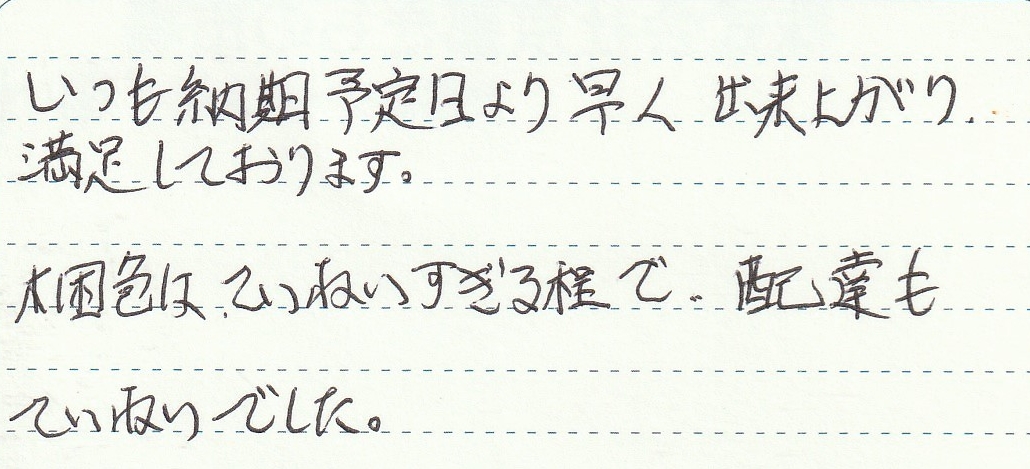 いつも納期予定日より早く出来上がり、
満足しております。
梱包は、ていねいすぎる程で、配達も
ていねいでした。